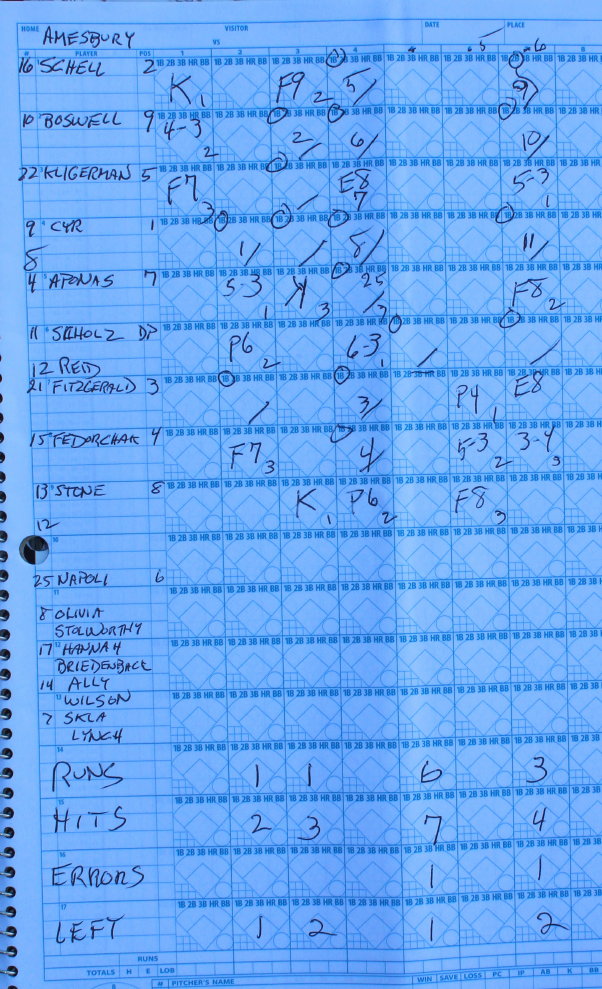 HOME AMESBURY VISITOR DATE PLACE
VS
# PLAYER POS 1 2 3 4 5 6 8
16 SCHELL 2 K 1 F9 2 5 9
10 BOSWELL 9 4-3 2 2 6 10
22 KLIGERMAN 5 F7 3 E8 7 5-3 1
9 CYR 1 1 8 11
8
4 APONAS 7 5-3 1 K 3 F8 2
11 SCHOLZ DP P6 2 6-3 1
12 REID
21 FITZGERALD 3 3 P4 1 E8
15 FEDORCHAK 4 F7 3 4 5-3 2 3-4 3
13 STONE 8 K 1 P6 2 F8 3
12
10
25 NAPOLI 6
11
8 OLIVIA
STOLWORTHY
17 HANNAH
BRIEDENBACK
14 ALLY
WILSON
7 SKLA
LYNCH
14
RUNS 1 1 6 3
15
HITS 2 3 7 4
16
ERRORS 1 1
17
LEFT 1 2 1 2
RUNS
TOTALS H E LOB
# PITCHER'S NAME WIN SAVE LOSS PC IP AB K BB